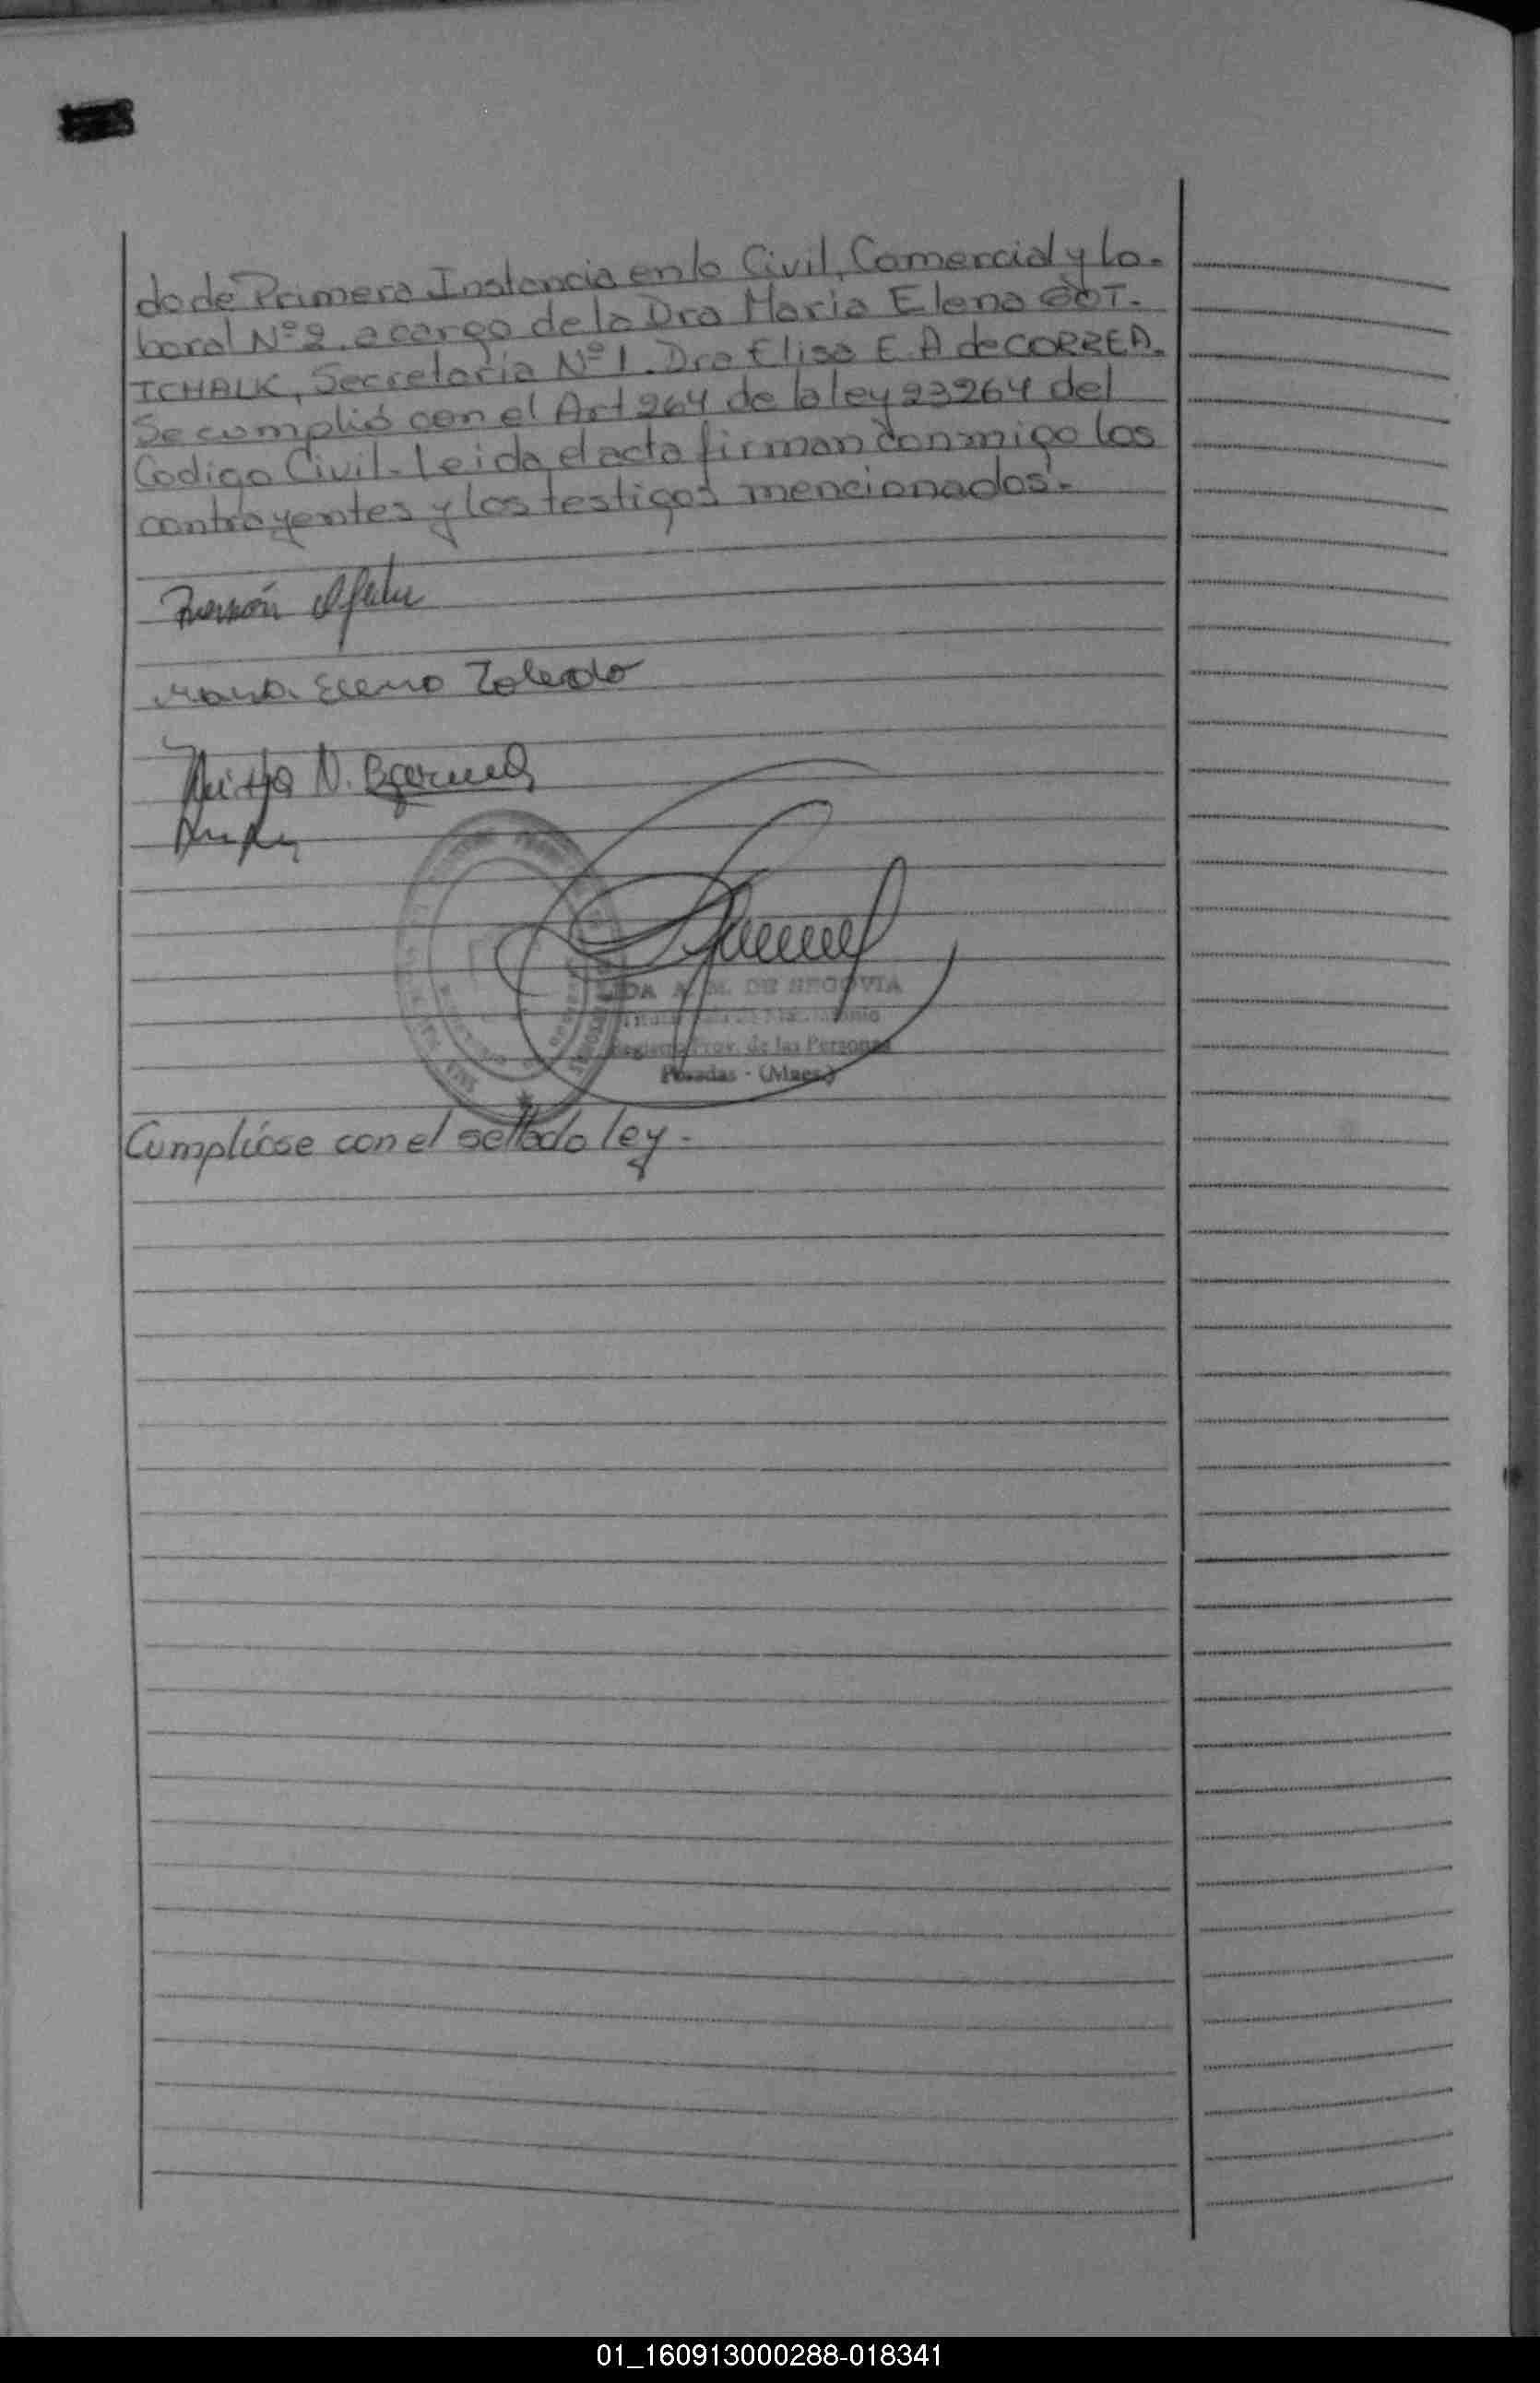 do de Primera Instancia en lo Civil, Comercial y La-
boral Nº 2, a cargo de la Dra Maria Elena GOT-
TCHALK, Secretaria Nº 1. Dra Elisa E. A de CORREA.
Se cumplió con el Art 264 de la ley 23264 del
Codigo Civil. Leida el acta firman conmigo los
contrayentes y los testigos mencionados.-
Ramón
Maria Elena Toledo
N.
LIDA A. M. DE SEGOVIA
Registro Prov. de las Personas
Posadas - (Mnes.)
Cumplióse con el sellado ley.-
01_160913000288-018341